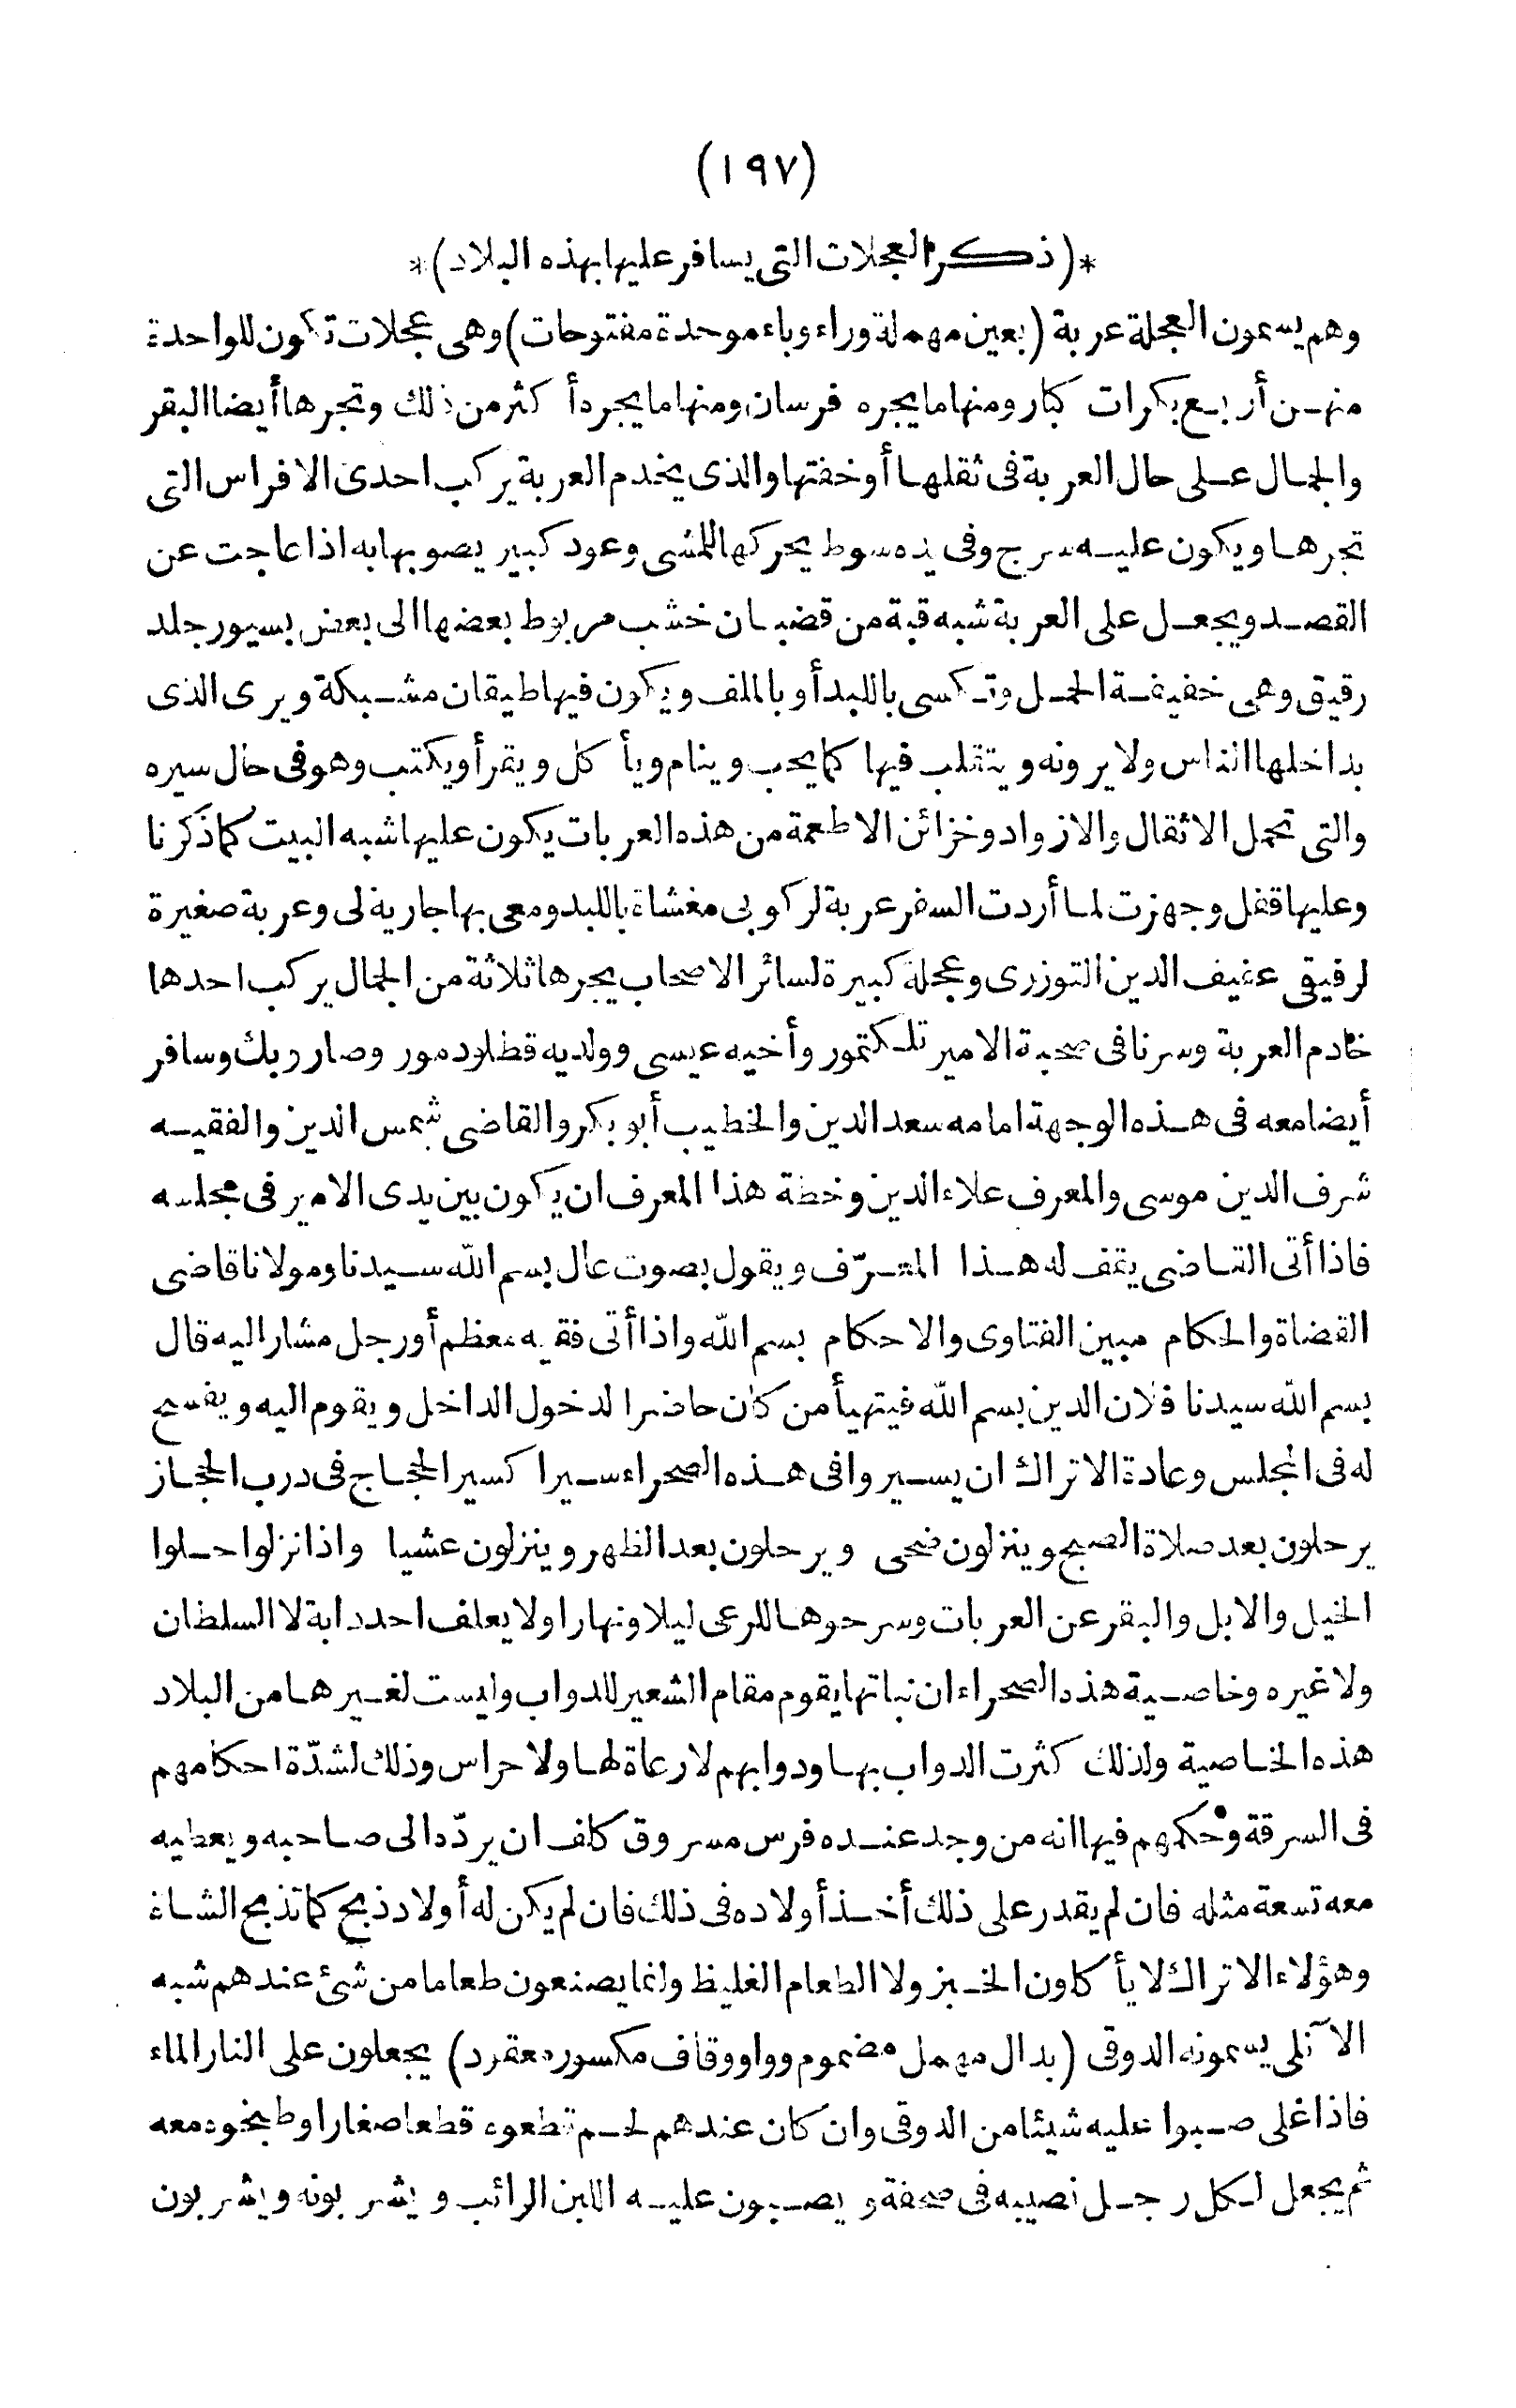 (١٩٧)
*(ذكر العجلات التى يسافر عليها بهذه البلاد)*
وهم يسمون العجلة عربة (بعين مهملة وراء وباء موحدة مفتوحات) وهى عجلات تكون للواحدة
منهن أربع بكرات كبار ومنها ما يجره فرسان ومنها ما يجره أكثر من ذلك وتجرها أيضا البقر
والجمال على حال العربة فى ثقلها أو خفتها والذى يخدم العربة يركب احدى الافراس التى
تجرها ويكون عليه سرج وفى يده سوط يحركها للمشى وعود كبير يصوبها به اذا عاجت عن
القصد ويجعل على العربة شبه قبة من قضبان خشب مربوط بعضها الى بعض بسيور جلد
رقيق وهى خفيفة الحمل وتكسى باللبد أو بالملف ويكون فيها طيقان مشبكة ويرى الذى
بداخلها الناس ولا يرونه ويتقلب فيها كما يحب وينام ويأكل ويقرأ ويكتب وهو فى حال سيره
والتى تحمل الاثقال والازواد وخزائن الاطعمة من هذه العربات يكون عليها شبه البيت كما ذكرنا
وعليها قفل وجهزت لما أردت السفر عربة لركوبى مغشاة باللبد ومعى بها جارية لى وعربة صغيرة
لرفيقى عفيف الدين التوزرى وعجلة كبيرة لسائر الاصحاب يجرها ثلاثة من الجمال يركب احدها
خادم العربة وسرنا فى صحبة الامير تلكتمور وأخيه عيسى وولديه قطلودمور وصاروبك وسافر
أيضا معه فى هذه الوجهة امامه سعد الدين والخطيب أبو بكر والقاضى شمس الدين والفقيه
شرف الدين موسى والمعرف علاء الدين وخطة هذا المعرف ان يكون بين يدى الامير فى مجلسه
فاذا أتى القاضى يقف له هذا المعرّف ويقول بصوت عال بسم الله سيدنا ومولانا قاضى
القضاة والحكام مبين الفتاوى والاحكام بسم الله واذا أتى فقيه معظم أو رجل مشار اليه قال
بسم الله سيدنا فلان الدين بسم الله فيتهيأ من كان حاضرا لدخول الداخل ويقوم اليه ويفسح
له فى المجلس وعادة الاتراك ان يسيروا فى هذه الصحراء سيرا كسير الحجاج فى درب الحجاز
يرحلون بعد صلاة الصبح وينزلون ضحى ويرحلون بعد الظهر وينزلون عشيا واذا نزلوا حلوا
الخيل والابل والبقر عن العربات وسرحوها للرعى ليلا ونهارا ولا يعلف احد دابة لا السلطان
ولا غيره وخاصية هذه الصحراء ان نباتها يقوم مقام الشعير للدواب وليست لغيرها من البلاد
هذه الخاصية ولذلك كثرت الدواب بها ودوابهم لا رعاة لها ولا حراس وذلك لشدّة احكامهم
فى السرقة وحكمهم فيها انه من وجد عنده فرس مسروق كلف ان يردّه الى صاحبه ويعطيه
معه تسعة مثله فان لم يقدر على ذلك أخذ أولاده فى ذلك فان لم يكن له أولاد ذبح كما تذبح الشاة
وهؤلاء الاتراك لا يأكلون الخبز ولا الطعام الغليظ وانما يصنعون طعاما من شئ عندهم شبه
الآنلى يسمونه الدوقى (بدال مهمل مضموم وواو وقاف مكسور معقود) يجعلون على النار الماء
فاذا غلى صبوا عليه شيئا من الدوقى وان كان عندهم لحم قطعوه قطعا صغارا وطبخوه معه
ثم يجعل لكل رجل نصيبه فى صحفة ويصبون عليه اللبن الرائب ويشربونه ويشربون